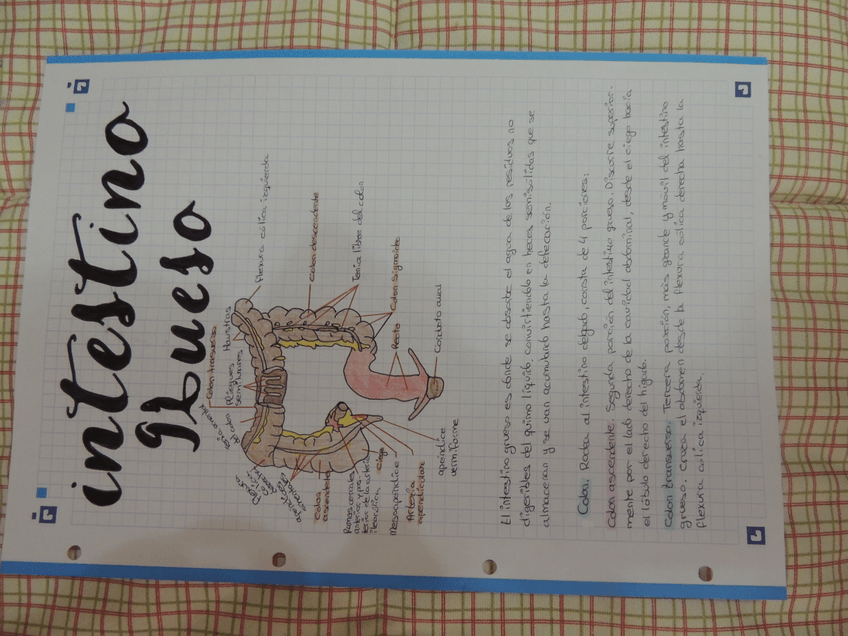 intestino
Grueso
Flexura cólica izquierda
Colon transverso
Haustras
Pliegues
semilunares
Colon descendente
Tenia libre del colon
Colon sigmoide
Recto
Conducto anal
Colon
ascendente
Ciego
Mesoapéndice
Arteria
apendicular
apéndice
vermiforme
El intestino grueso es donde se absorbe el agua de los residuos no
digeribles del quimo líquido, convirtiéndolo en heces semisólidas que se
almacenan y se van acumulando hasta la defecación.
Colon. Rodea al intestino delgado, consta de 4 porciones:
Colon ascendente. Segunda porción del intestino grueso. Discurre superior-
mente por el lado derecho de la cavidad abdominal, desde el ciego hacia
el lóbulo derecho del hígado.
Colon transverso. Tercera porción, más grande y móvil del intestino
grueso. Cruza el abdomen desde la flexura cólica derecha hasta la
flexura cólica izquierda.